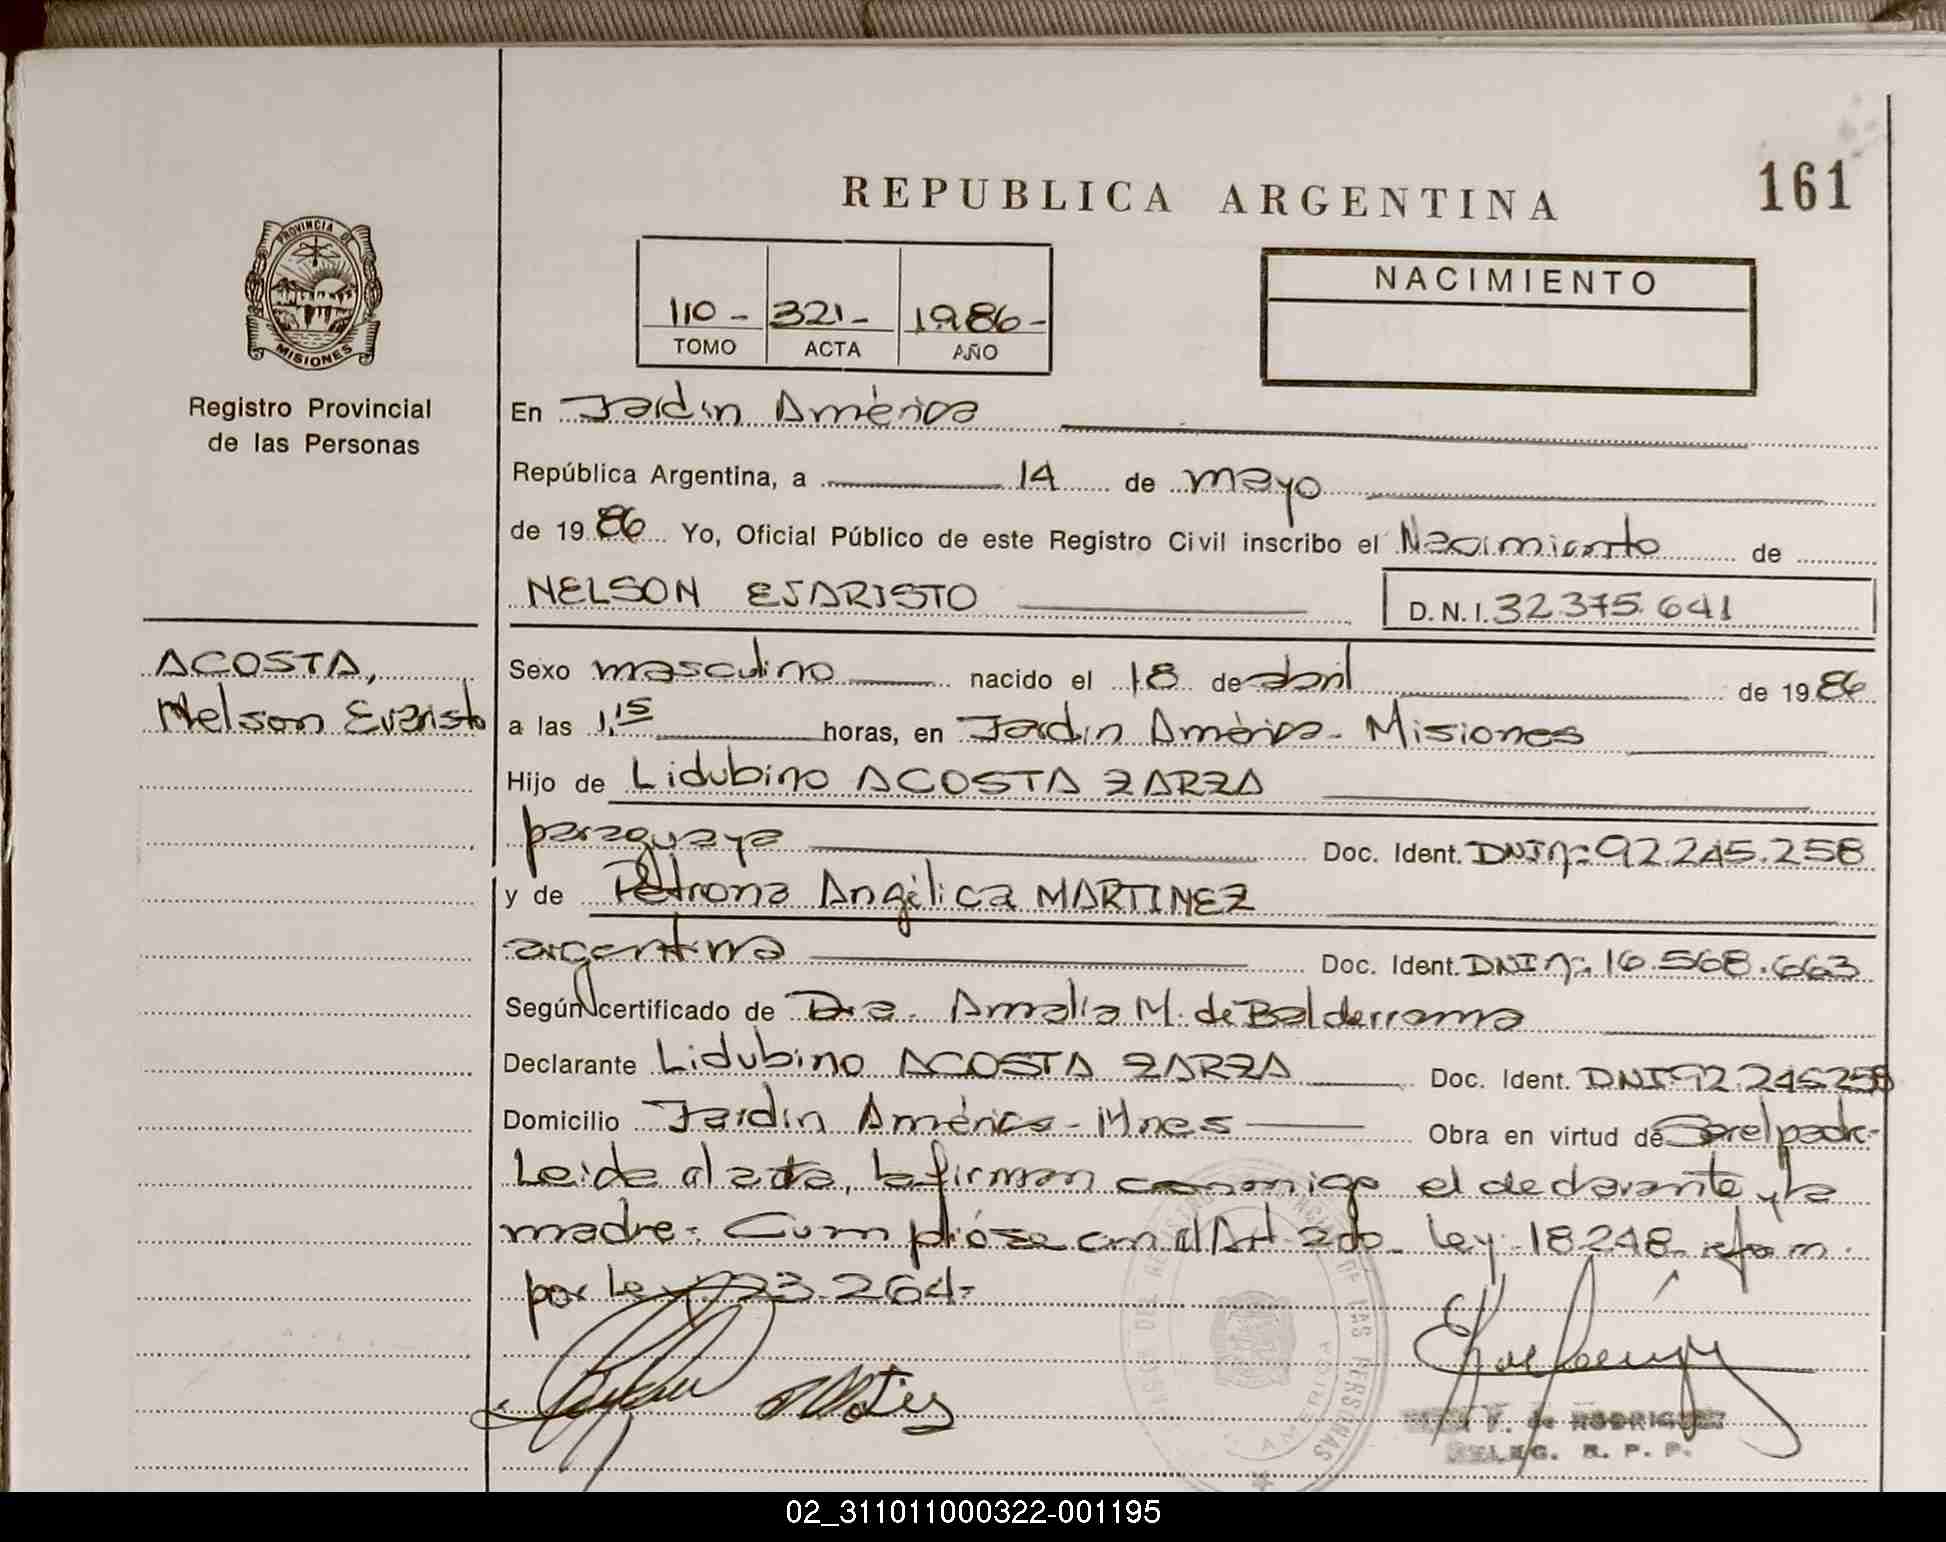 REPUBLICA ARGENTINA
161
PROVINCIA DE
MISIONES
Registro Provincial
de las Personas
110 - 321 - 1986 -
TOMO ACTA AÑO
NACIMIENTO
En Jardin América
República Argentina, a 14 de mayo
de 1986 Yo, Oficial Público de este Registro Civil inscribo el Nacimiento de
NELSON EVARISTO D.N.I. 32.375.641
ACOSTA,
Nelson Evaristo
Sexo masculino nacido el 18 de abril de 1986
a las 1,15 horas, en Jardin América - Misiones
Hijo de Lidubino ACOSTA ZARZA
paraguaya Doc. Ident. DNI nº 92.245.258
y de Petrona Angélica MARTINEZ
argentina Doc. Ident. DNI nº 16.568.663
Según certificado de Dra. Amalia M. de Balderrama
Declarante Lidubino ACOSTA ZARZA Doc. Ident. DNI 92.245258
Domicilio Jardin América - Mnes Obra en virtud de Ser el padre-
Leida el acta, la firman conmigo el declarante y la
madre: Cumplióse con el Art 2do. Ley 18248
por ley 23.264-
DE LAS PERSONAS
AMERICA
F. de RODRIGUEZ
DELEG. R. P. P.
02_311011000322-001195